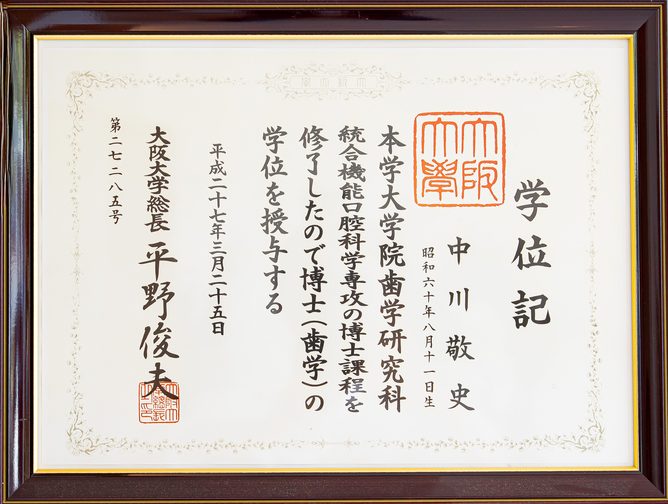 学位記
大阪大學
中川敬史
昭和六十年八月十一日生
本学大学院歯学研究科
統合機能口腔科学専攻の博士課程を
修了したので博士(歯学)の
学位を授与する
平成二十七年三月二十五日
大阪大学総長 平野俊夫
第二七二八五号